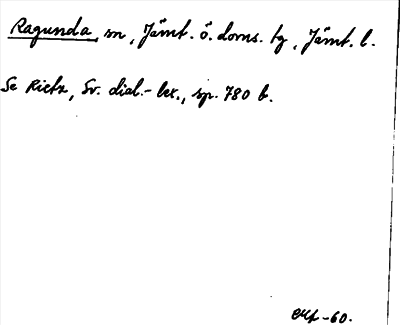 Ragunda, sn, Jämt. ö. doms. tg, Jämt. l.
Se Rietz, Sv. dial.-lex., sp. 780 b.
-60.